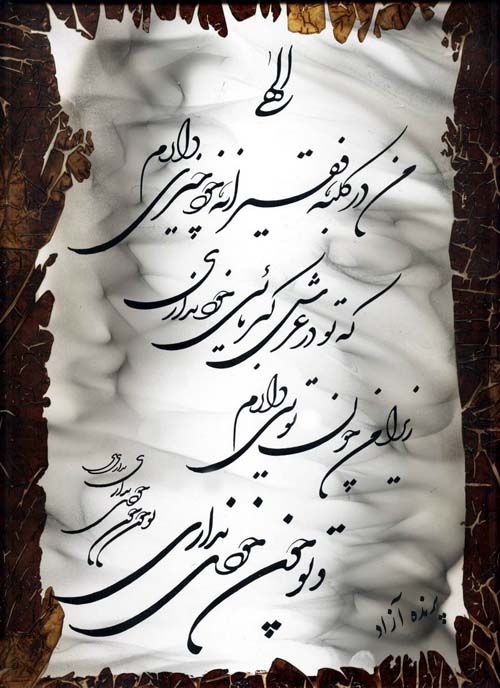 الهی
من در کلبه فقیرانه خود چیزی دارم
که تو در عرش کبریائی خود نداری
زیرا من چون تویی دارم
و تو چون خودی نداری
تو چون خودی نداری
پرنده آزاد